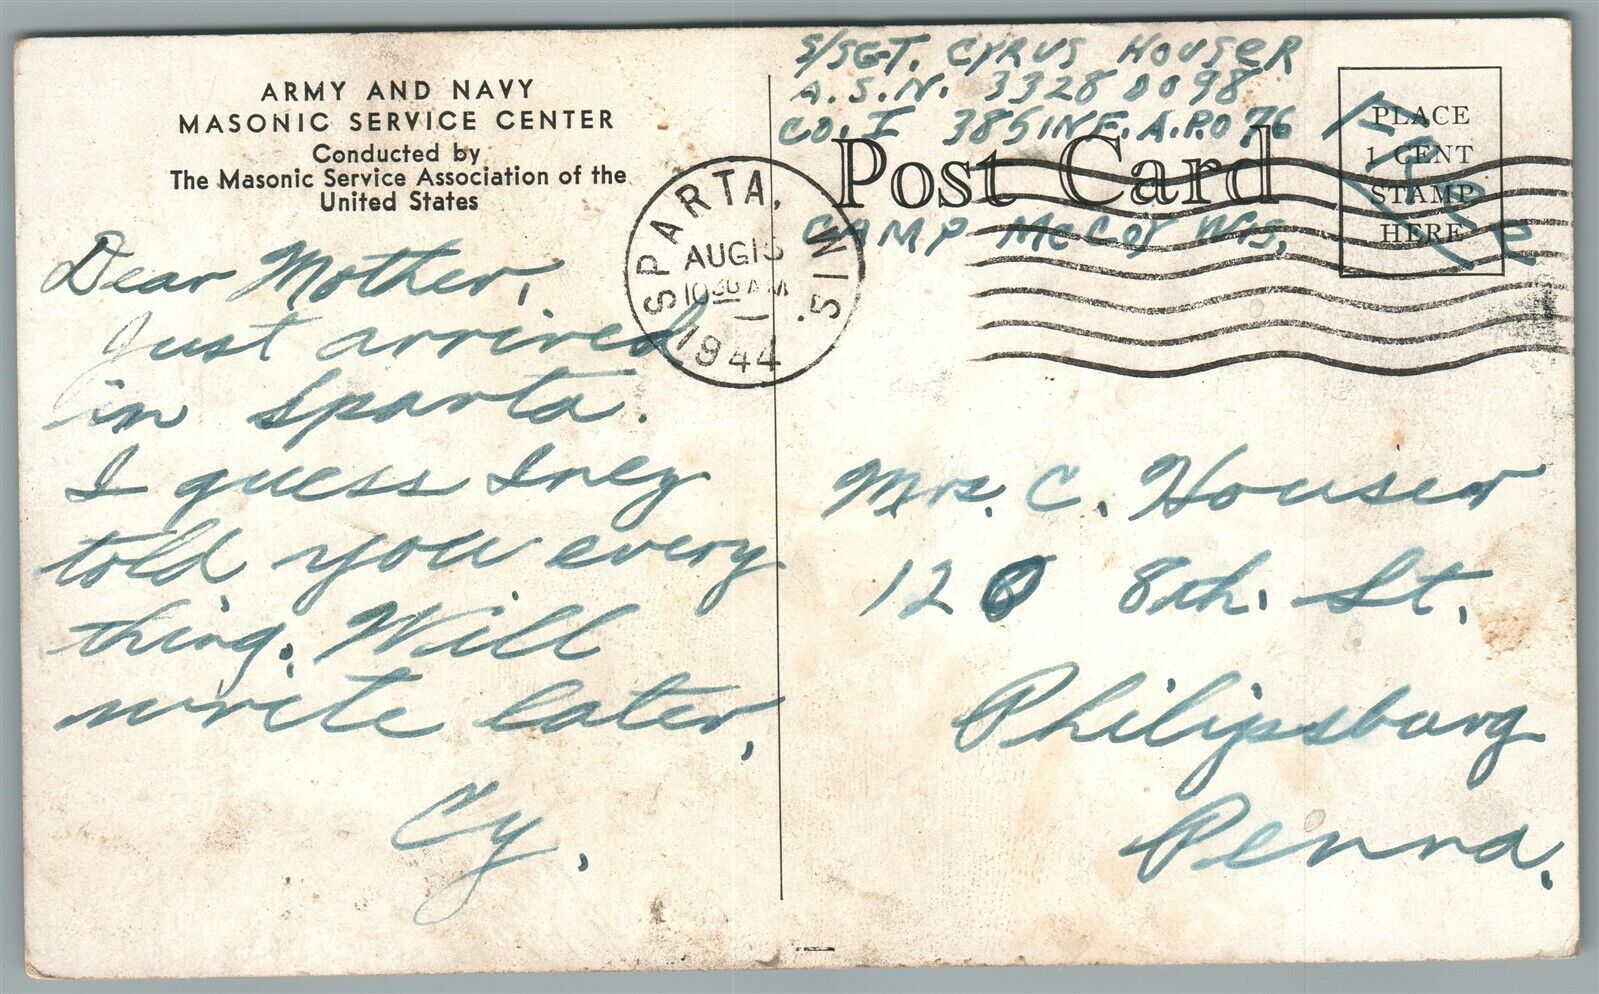 ARMY AND NAVY
MASONIC SERVICE CENTER
Conducted by
The Masonic Service Association of the
United States
Dear Mother,
Just arrived
in Sparta.
I guess Inez
told you every
thing. Will
write later,
Cy.
S/SGT. CYRUS HOUSER
A.S.N. 33280098
CO. I 385 INF. A.P.O 76
Post Card
CAMP McCOY WIS.
SPARTA, WIS.
AUG 15
10 30 AM
1944
PLACE
1 CENT
STAMP
HERE
Free
Mrs. C. Houser
120 8th. St.
Philipsburg
Penna.